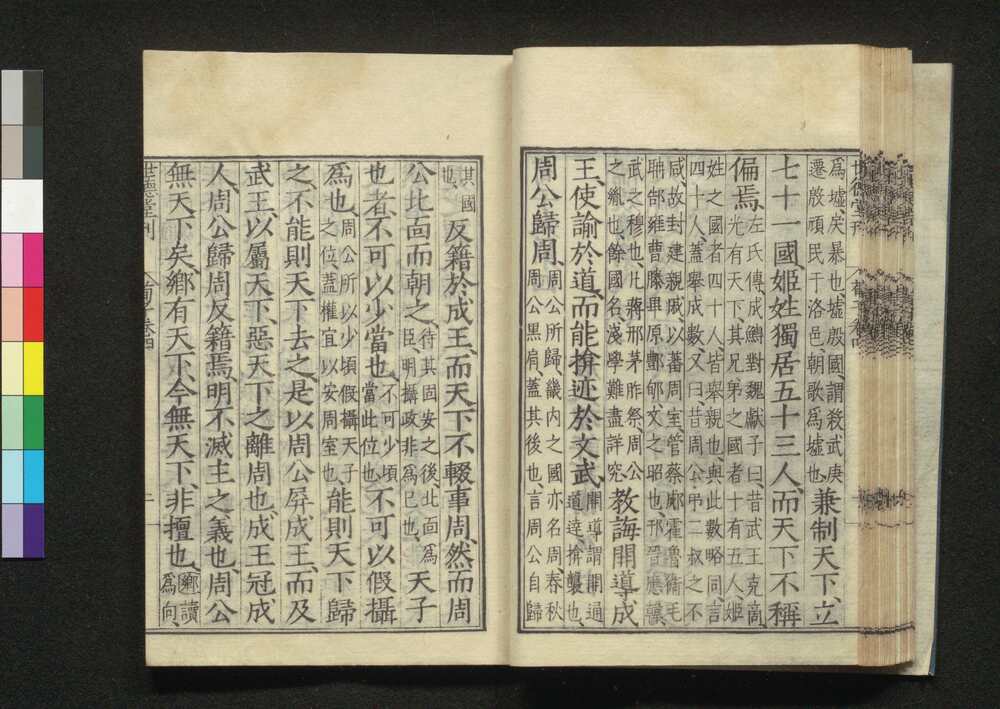 世德堂刊
爲墟、戾暴也、墟殷國、謂殺武庚
遷殷頑民于洛邑、朝歌爲墟也、
兼制天下、立
七十一國姬姓獨居五十三人、而天下不稱
偏焉、
左氏傳、成鱄對魏獻子曰、昔武王克商、
光有天下、其兄弟之國者十有五人、姬
姓之國者四十人、皆舉親也、與此數略同、言
四十人、蓋舉成數、又曰、昔周公弔二叔之不
咸、故封建親戚、以蕃周室、管蔡郕霍魯衛毛
聃郜雍曹滕畢原酆郇文之昭也、邗晉應韓、
武之穆也、凡蔣邢茅胙祭、周公
之胤也、餘國名、淺學難盡詳究、
教誨開導成
王、使諭於道、而能揜迹於文武、
開導謂開通
道達、揜襲也、
周公歸周、
周公所歸、畿内之國亦名周、春秋
周公黒肩、蓋其後也、言周公自歸
其國
也、
反籍於成王、而天下不輟事周、然而周
公北面而朝之、
待其固安之後、北面爲
臣、明攝政非爲己也、
天子
也者、不可以少當也、
不可少頃
當此位也
不可以假攝
爲也、
周公所以少頃假攝天子
之位、蓋權宜以安周室也
能則天下歸
之、不能則天下去之、是以周公屏成王、而及
武王、以屬天下、惡天下之離周也、成王冠成
人、周公歸周反籍焉、明不滅主之義也、周公
無天下矣、鄉有天下、今無天下、非擅也、
鄉讀
爲向、
世德堂刊
荀子卷四
二